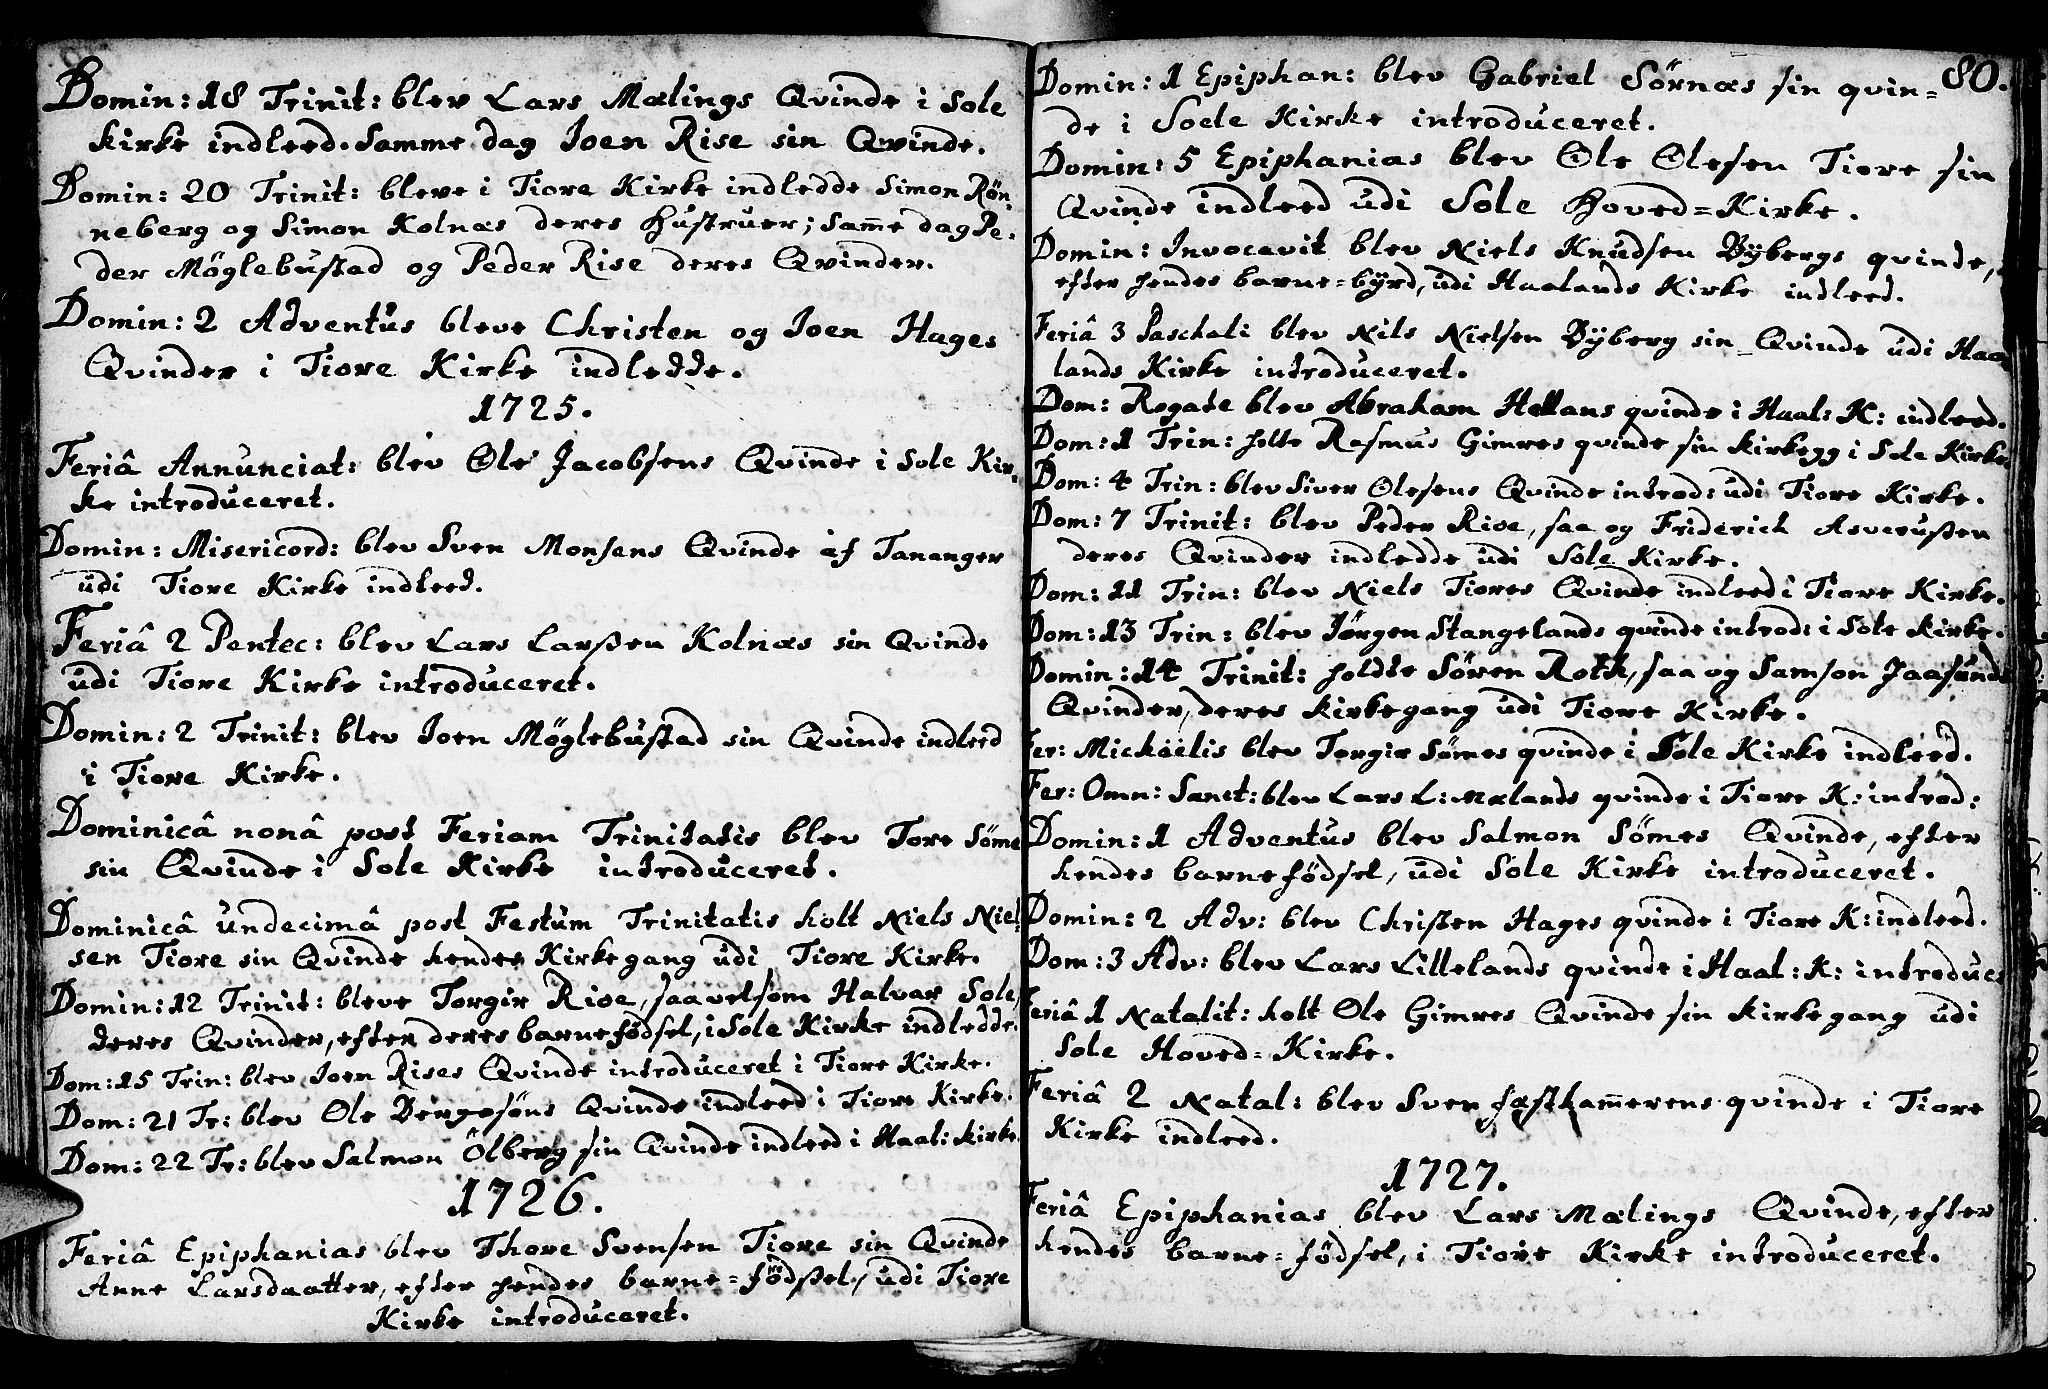 Domin: 18 Trinit: blev Lars Mælings Qvinde i Sole
kirke indleed. Samme dag Joen Rise sin Qvinde.
Domin: 20 Trinit: bleve i Tiore Kirke indledde Simon Rön-
neberg og Simon Kolnæs deres Hustruer; Sam̅e dag Pe-
der Möglebustad og Peder Rise deres Qvinder.
Domin: 2 Adventus bleve Christen og Joen Hages
Qvinder i Tiore Kirke indledde.
1725.
Feriâ Annunciat: blev Ole Jacobsens Qvinde i Sole Kir-
ke introduceret.
Domin: Misericord: blev Sven Monsens Qvinde af Tananger
udi Tiore Kirke indleed.
Feriâ 2 Pentec: blev Lars Larßen Kolnæs sin Qvinde
udi Tiore Kirke introduceret.
Domin: 2 Trinit: blev Joen Möglebustad sin Qvinde indleed
i Tiore Kirke.
Dominicâ nonâ post Feriam Trinitatis blev Tore Söme
sin Qvinde i Sole Kirke introduceret.
Dominicâ undecimâ post Festum Trinitatis holt Niels Niel-
sen Tiore sin Qvinde hendes Kirkegang udi Tiore Kirke.
Domin: 12 Trinit: bleve Torgir Rise, saavelsom Halvar Sole,
deres Qvinder, efter deres barnefödsel, i Sole Kirke indledde.
Dom: 15 Trin: blev Joen Rises Qvinde introduceret i Tiore Kirke.
Dom: 21 Tr: blev Ole Bergesöns Qvinde indleed i Tiore Kirke.
Dom: 22 Tr: blev Salmon Ölberg sin Qvinde indleed i Haal: kirke.
1726.
Feriâ Epiphanias blev Thore Svensen Tiore sin Qvinde
Anne Larsdaatter, efter hendes barne=födßel, udi Tiore
Kirke introduceret.
80.
Domin: 1 Epiphan: blev Gabriel Sörnæs sin qvin=
de i Soele Kirke introduceret.
Domin: 5 Epiphanias blev Ole Olesen Tiore sin
Qvinde indleed udi Sole Hoved=Kirke.
Domin: Invocavit blev Niels Knudsen Bybergs qvinde,
efter hendes barne=byrd, udi Haalands Kirke indleed.
Feriâ 3 Paschali blev Nils Nielsen Byberg sin Qvinde udi Haa-
lands Kirke introduceret.
Dom: Rogate blev Abraham Hellans qvinde i Haal: K: indleed.
Dom: 1 Trin: holte Rasmus Gimres qvinde sin kirkegg i Sole Kirke.
Dom: 4 Trin: blev Siver Olesens Qvinde introd: udi Tiore Kirke.
Dom: 7 Trinit: blev Peder Rise, saa og Friderich Asverußen
deres Qvinder indledde udi Sole Kirke.
Dom: 11 Trin: blev Niels Tiores Qvinde indleed i Tiore Kirke.
Dom: 13 Trin: blev Jørgen Stangelands qvinde introd: i Sole kirke.
Domin: 14 Trinit: holdte Sören Roth, saa og Samson Jaasunds
Qvinder, deres kirkegang udi Tiore Kirke.
Fer: Michaëlis blev Torgir Sömes qvinde i Sole Kirke indleed.
Fer: Omn: Sanct: blev Lars L: Mælands qvinde i Tiore K: introd:
Domin: 1 Adventus blev Salmon Sömes Qvinde, efter
hendes barnefödsel, udi Sole Kirke introduceret.
Domin: 2 Adv: blev Christen Hages qvinde i Tiore K: indleed.
Dom: 3 Adv: blev Lars Lillelands qvinde i Haal: K: introduce
Feriâ 1 Natalit: holt Ole Gimres Qvinde sin kirkegang udi
Sole Hoved=Kirke.
Feriâ 2 Natal: blev Sven qvinde i Tiore
Kirke indleed.
1727.
Feriâ Epiphanias blev Lars Mælings Qvinde, efter
hendes barne=födsel, i Tiore Kirke introduceret.